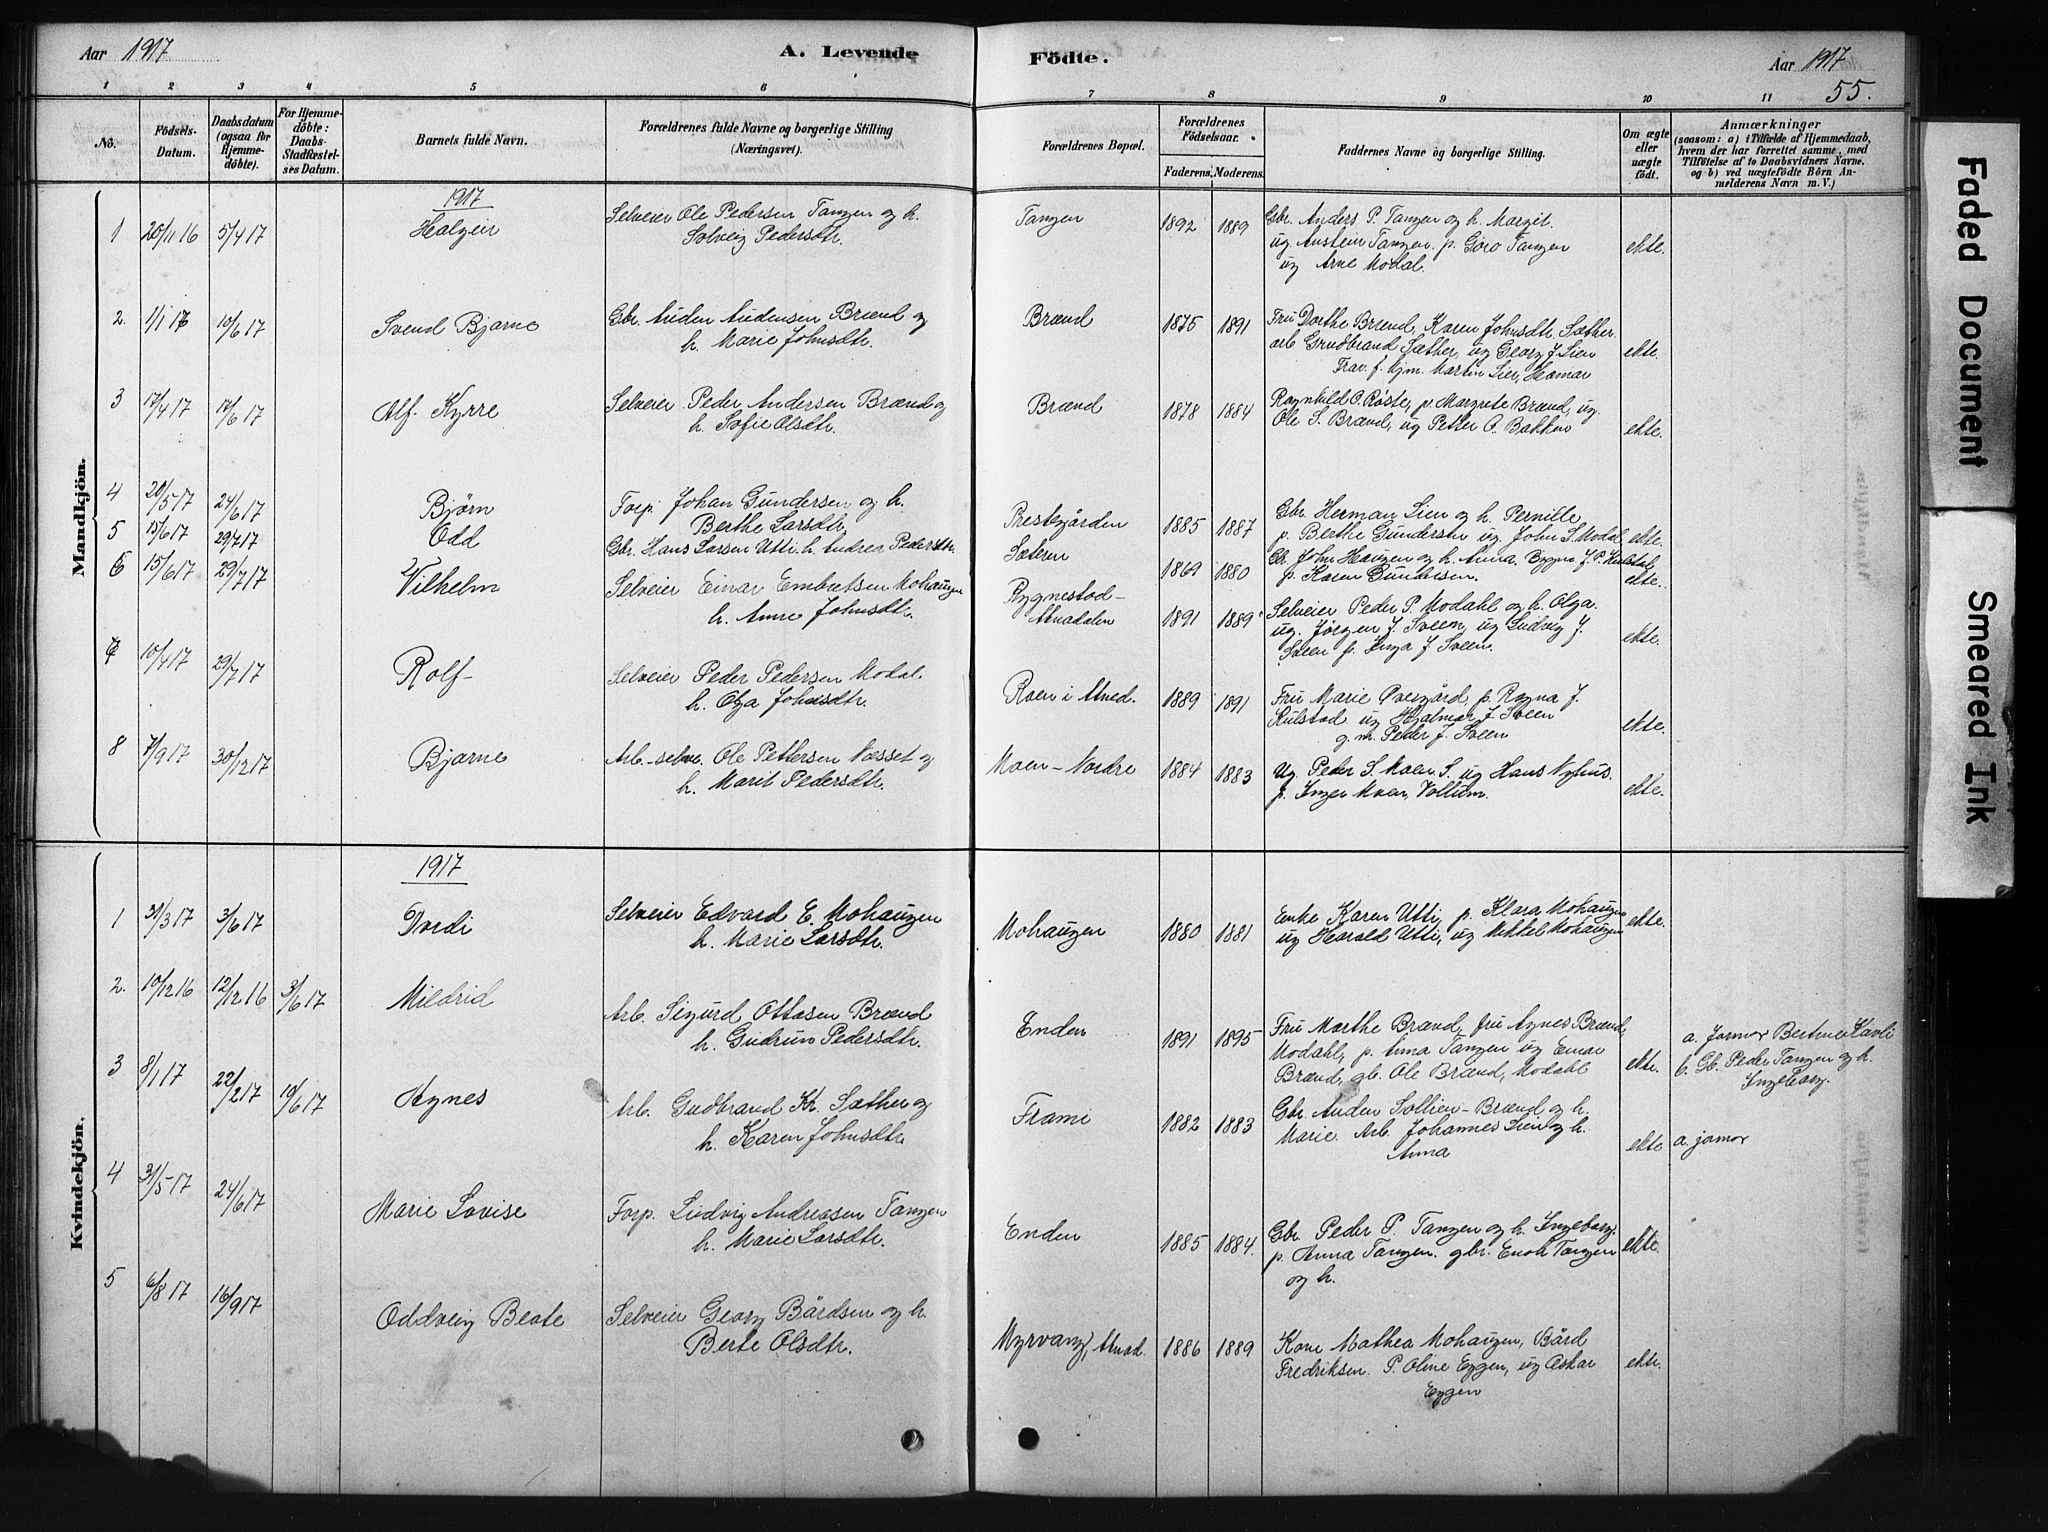 Aar 1917
A. Levende
Födte.
Aar 1917
55.
1 2 3 4 5 6 7 8 9 10 11
No.
Födsels-Datum.
Daabsdatum (ogsaa for Hjemmedöbte).
For Hjemmedöbte: Daabs-Stadfæstelses Datum.
Barnets fulde Navn.
Forældrenes fulde Navne og borgerlige Stilling (Næringsvei).
Forældrenes Bopæl.
Forældrenes Födselsaar.
Faderens. Moderens.
Faddernes Navne og borgerlige Stilling.
Om ægte eller uægte födt.
Anmærkninger
(saasom: a) i Tilfælde af Hjemmedaab, hvem der har forrettet samme, med Tilföielse af to Daabsvidners Navne. og b) ved uægtefödte Börn Anmelderens Navn m. V.)
Mandkjön.
1917
1 20/11 16 5/4 17 Halgeir
Selveier Ole Pedersen Tangen og h.
Solveig Pedersdtr.
Tangen 1892 1889
Gbr. Anders P. Tangen og h. Margit.
ug. Austein Tangen. p. Goro Tangen
ug Arne Modal.
ekte.
2. 1/1 17 10/6 17 Svend Bjarne
Gbr. Auden Audensen Brænd og
h. Marie Johnsdtr.
Brænd 1875 1891
Fru Dorthe Brænd, Karen Johnsdtr. Sæther.
arb. Gudbrand Sæther, ug Georg J. Lien
Frav. f. Martin Lien, Hamar
ekte.
3 17/4 17 17/6 17 Alf Kyrre
Selveier Peder Andersen Brænd og
h. Sofie Olsdtr.
Brænd 1878 1884
Ragnhild O. Røste, p. Margrete Brænd, ug.
Ole S. Brænd, ug Petter O. Bakken
ekte.
4 20/5 17 24/6 17 Bjørn
Forp. Johan Gundersen og h.
Berthe Larsdtr.
Prestegården 1885 1887
Gbr. Herman Lien og h. Pernille
p. Berthe Gundersen ug. John S. Modal
ekte.
5 15/6 17 29/7 17 Odd
Gbr. Hans Larsen Utti h. Andrea Pedersdtr.
Sæteren 1869 1880
Gbr. John Haugen og h. Anna. Bygns J. P. Kulstad
p. Karen Gundersen.
ekte.
6 15/6 17 29/7 17 Vilhelm
Selveier Einar Embretsen Mohaugen
h. Anne Johnsdtr.
Rygnestad-
Atnadalen 1891 1889
Selveier Peder P. Modahl og h. Olga.
ug. Jørgen J. Sveen, ug Ludvig J.
Sveen p. Inga J. Sveen.
ekte.
7 10/4 17 29/7 17 Rolf
Selveier Peder Pedersen Modal.
h. Olga Johnsdtr.
Roen i Atned. 1889 1891
Fru Marie Øvergård, p. Ragna J.
Kulstad ug Hjalmar J. Sveen
g. m. Peder J. Sveen
ekte.
8 7/9 17 30/12 17 Bjarne
Arb.-selve. Ole Pettersen Næsset og
h. Marit Pedersdtr.
Moen-Nordre 1884 1883
Ug. Peder S. Moen S. ug Hans Nyhus.
p. Inger Moen, Vollum.
ekte.
Kvindekjön.
1917
1 31/3 17 3/6 17 Tordi
Selveier Edvard E. Mohaugen
h. Marie Larsdtr.
Mohaugen 1880 1881
Enke Karen Utti, p. Klara Mohaugen
ug Harald Utti, ug Mikkel Mohaugen
ekte.
2. 10/12 16 12/12 16 3/6 17 Mildrid
Arb. Sigurd Ottosen Brænd
h. Gudrun Pedersdtr.
Enden 1891 1895
Fru Marthe Brænd, fru Agnes Brænd,
Modahl, p. Anna Tangen ug Einar
Brænd, gb. Ole Brænd, Modahl
ekte.
a. Jormor Bertine Havli
b. Gb. Peder Tangen og h.
Ingeborg.
3 8/1 17 22/2 17 10/6 17 Agnes
Arb. Gudbrand Kr. Sæther og
h. Karen Johnsdtr.
Frami 1882 1883
Gbr. Auden Sollien-Brænd og h.
Marie. Arb. Johannes Lien og h.
Anna
ekte
a. jormor
4 31/5 17 24/6 17 Marie Lovise
Forp. Ludvig Andreasen Tangen
h. Marie Larsdtr.
Enden 1885 1884.
Gbr. Peder P. Tangen og h. Ingeborg.
p. Anna Tangen. gbr. Enok Tangen
og h.
ekte.
5 6/8 17 16/9 17 Oddveig Beate
Selveier Georg Bårdsen og h.
Berte Olsdtr.
Myrvang, Atnad. 1886 1889
Kone Mathea Mohaugen, Bård
Fredriksen. P. Oline Eggen, ug Oskar
Eggen
ekte.
Faded Document
Smeared Ink